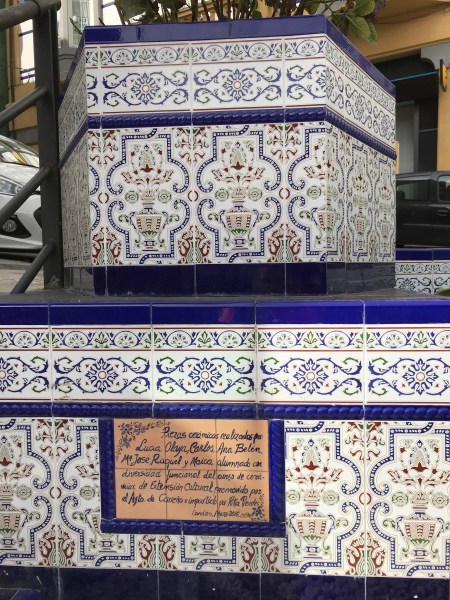 Piezas cerámicas realizadas por
Lucía, Olaya, Carlos, Ana Belén,
Mª José, Raquel y Maica, alumnado con
diversidad funcional del curso de cerá-
mica de Extensión Cultural promovido por
el Ayto. de Carreño e impartido por Rita